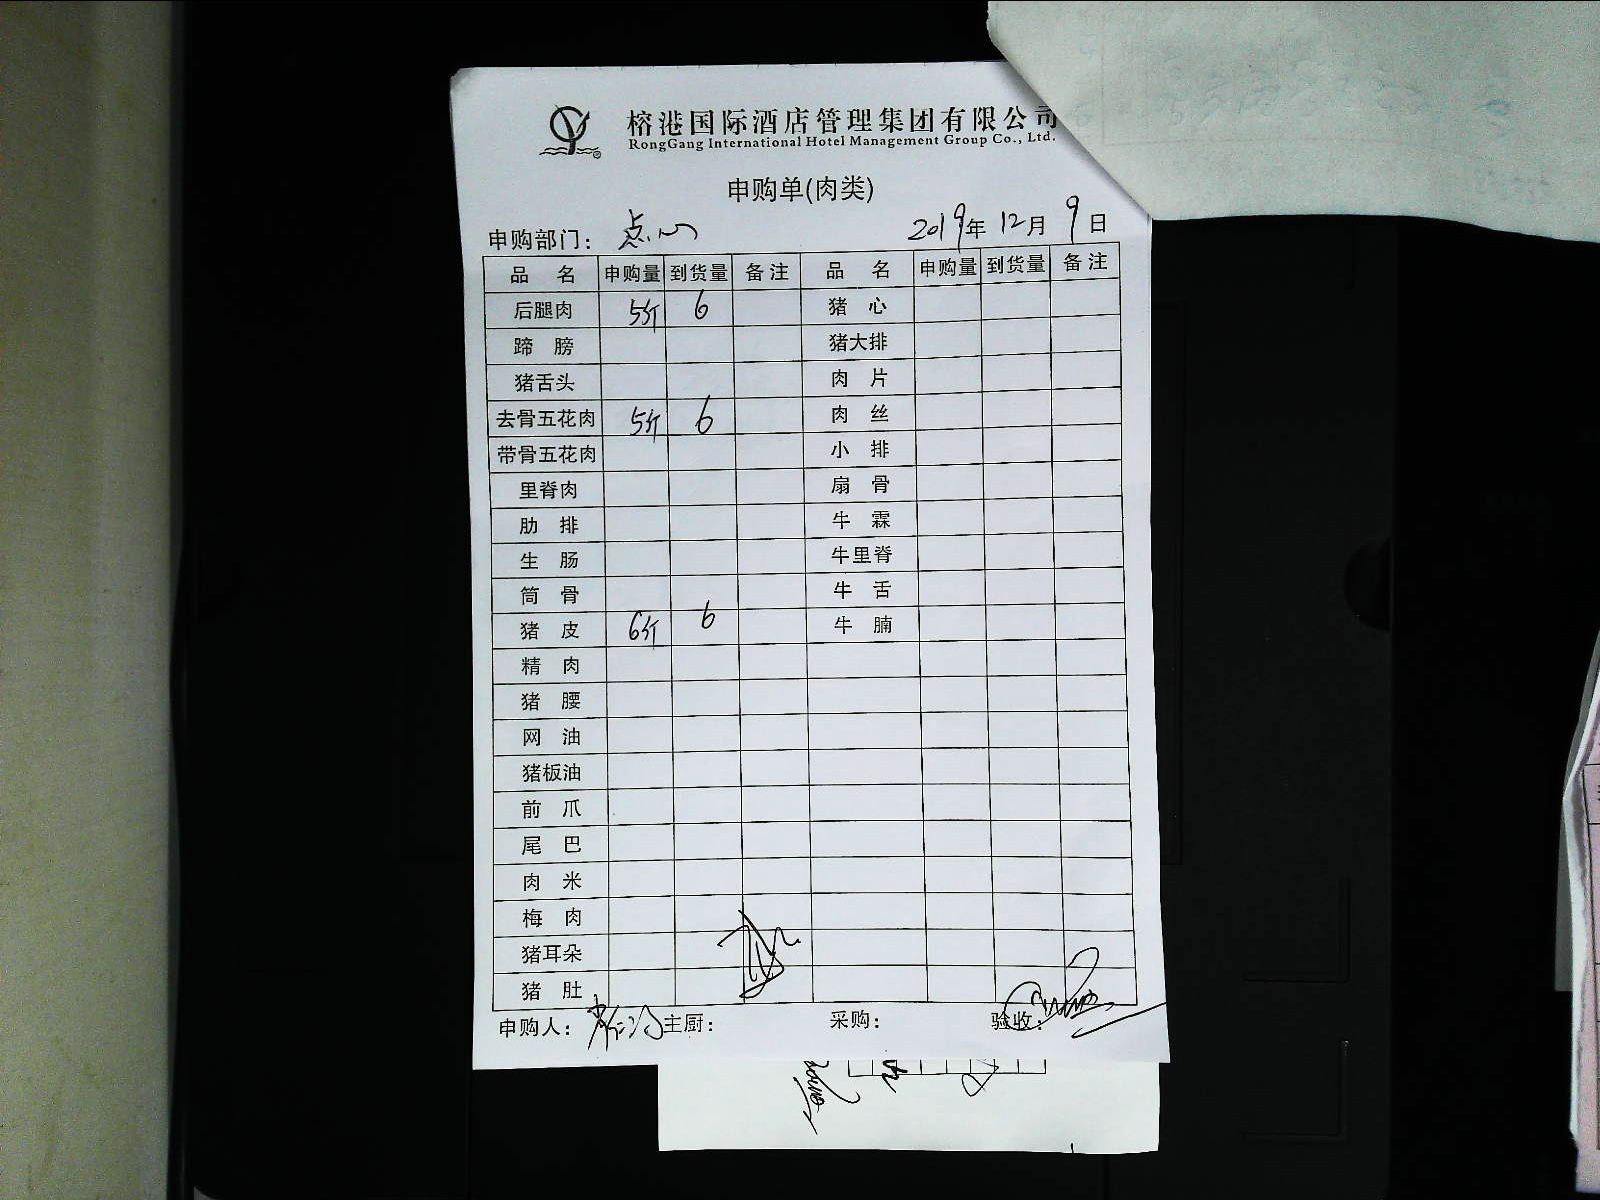 榕港国际酒店管理集团有限公司
RongGang International Hotel Management Group Co., Ltd.
申购单(肉类)
申购部门： 点心 2019年 12月 9日
品 名 申购量 到货量 备注 品 名 申购量 到货量 备注
后腿肉 5斤 6 猪 心
蹄 膀 猪大排
猪舌头 肉 片
去骨五花肉 5斤 6 肉 丝
带骨五花肉 小 排
里脊肉 扇 骨
肋 排 牛 霖
生 肠 牛里脊
筒 骨 牛 舌
猪 皮 6斤 6 牛 腩
精 肉
猪 腰
网 油
猪板油
前 爪
尾 巴
肉 米
梅 肉
猪耳朵
猪 肚
申购人： 主厨： 采购： 验收：